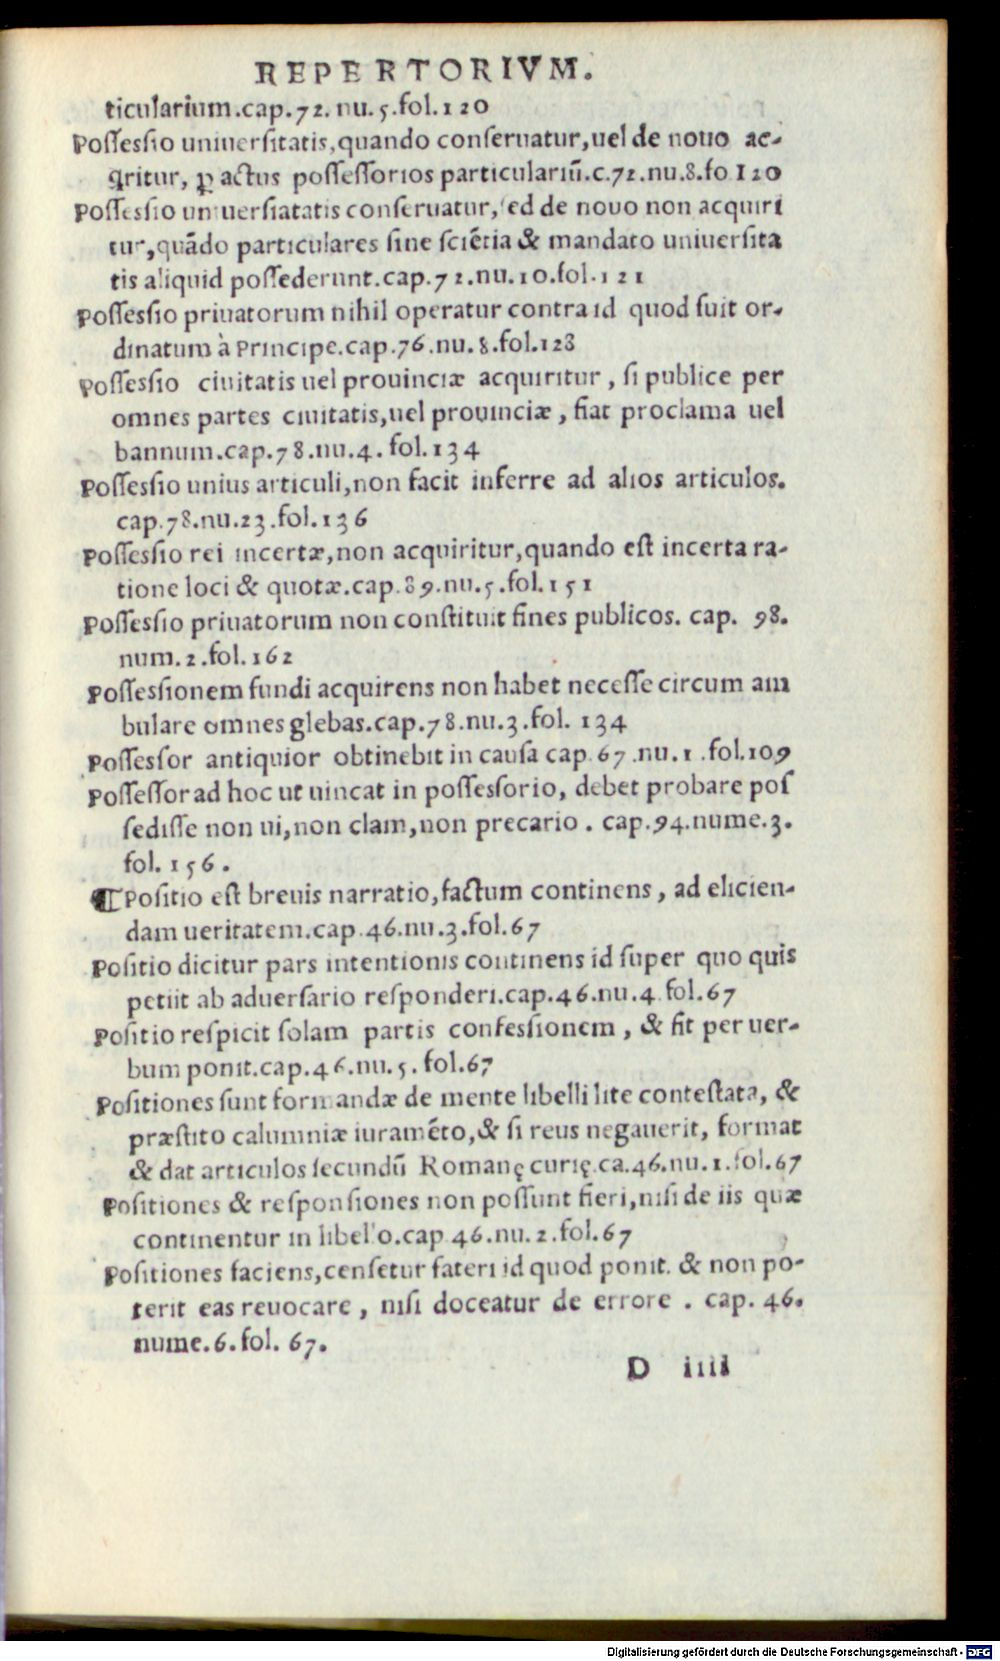 REPERTORIVM.
ticularium.cap.72.nu.5.fol.120
Possessio uniuersitatis,quando conseruatur,uel de nouo ac-
q̃ritur, ꝑ actus possessorios particulariũ.c.72.nu.8.fo.120
Possessio uniuersiatatis conseruatur,sed de nouo non acquiri
tur,quãdo particulares sine sciẽtia & mandato uniuersita
tis aliquid possederunt.cap.72.nu.10.fol.121
Possessio priuatorum nihil operatur contra id quod fuit or-
dinatum à Principe.cap.76.nu.8.fol.128
Possessio ciuitatis uel prouinciæ acquiritur, si publice per
omnes partes ciuitatis,uel prouinciæ, fiat proclama uel
bannum.cap.78.nu.4. fol.134
Possessio unius articuli,non facit inferre ad alios articulos.
cap.78.nu.23.fol.136
Possessio rei incertæ,non acquiritur,quando est incerta ra-
tione loci & quotæ.cap.89.nu.5.fol.151
Possessio priuatorum non constituit fines publicos. cap. 98.
num.2.fol.162
Possessionem fundi acquirens non habet necesse circum am
bulare omnes glebas.cap.78.nu.3.fol. 134
Possessor antiquior obtinebit in causa cap.67.nu.1.fol.109
Possessor ad hoc ut uincat in possessorio, debet probare pos
sedisse non ui,non clam,non precario. cap.94.nume.3.
fol. 156.
¶Positio est breuis narratio,factum continens, ad elicien-
dam ueritatem.cap.46.nu.3.fol.67
Positio dicitur pars intentionis continens id super quo quis
petiit ab aduersario responderi.cap.46.nu.4.fol.67
Positio respicit solam partis confessionem, & fit per uer-
bum ponit.cap.46.nu.5. fol.67
Positiones sunt formandæ de mente libelli lite contestata, &
præstito calumniæ iuramẽto,& si reus negauerit, format
& dat articulos secundũ Romanę curię.ca.46.nu.1.fol.67
Positiones & responsiones non possunt fieri,nisi de iis quæ
continentur in libello.cap.46.nu.2.fol.67
Positiones faciens,censetur fateri id quod ponit. & non po-
terit eas reuocare, nisi doceatur de errore. cap. 46.
nume.6.fol. 67.
D iiii
Digitalisierung gefördert durch die Deutsche Forschungsgemeinschaft - DFG